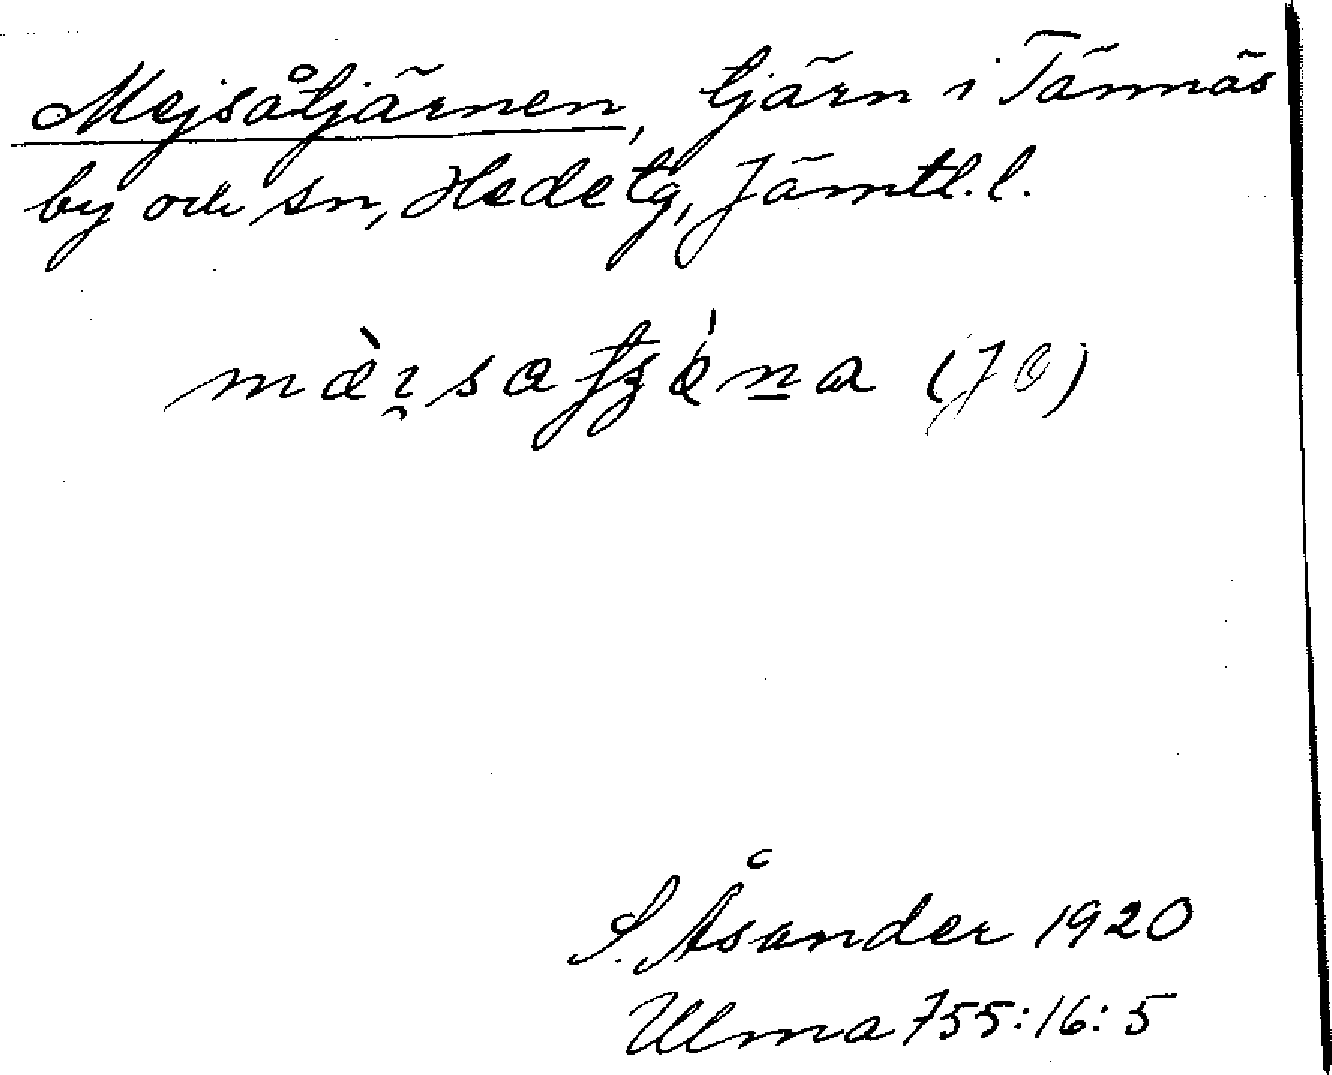 Mejsåtjärnen, tjärn i Tännäs
by och sn, Hede tg, Jämtl. l.
S. Åsander 1920
Ulma 755:16:5